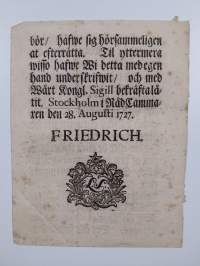 bör/ hafwe sig hörsammeligen
at efterrätta. Til yttermera
wisso hafwe Wi detta med egen
hand underskrifwit/ och med
Wårt Kongl. Sigill bekräfta lå-
tit. Stockholm i Råd Camma-
ren den 28. Augusti 1727.
FRIEDRICH.